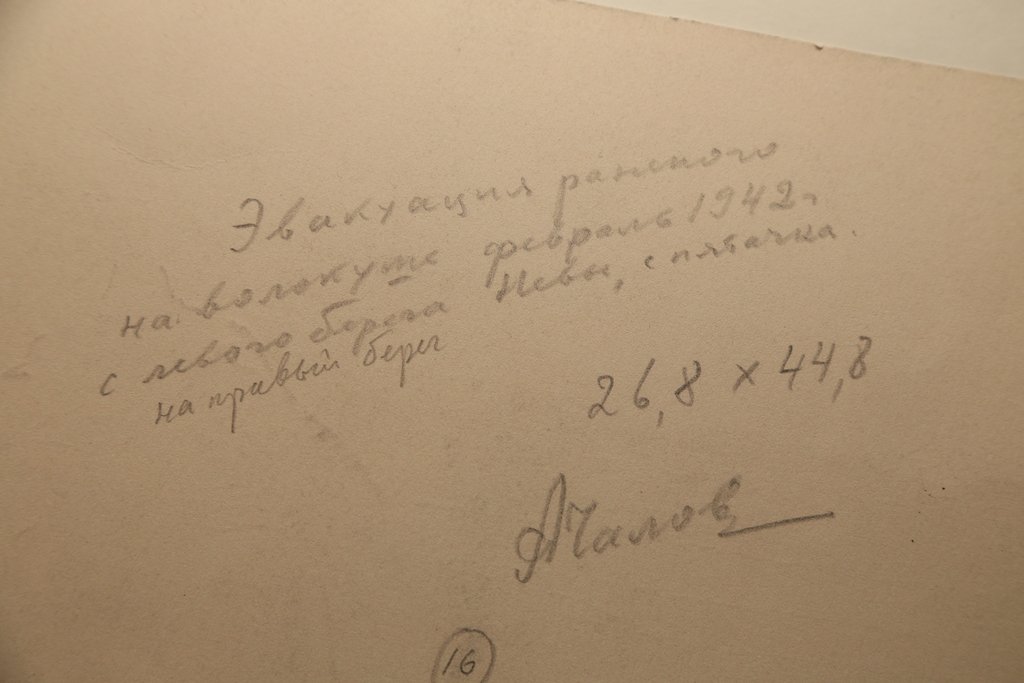 Эвакуация раненого
на волокуше февраль 1942 г
с левого берега Невы, с пятачка.
на правый берег
26,8 × 44,8
АЧалов
16